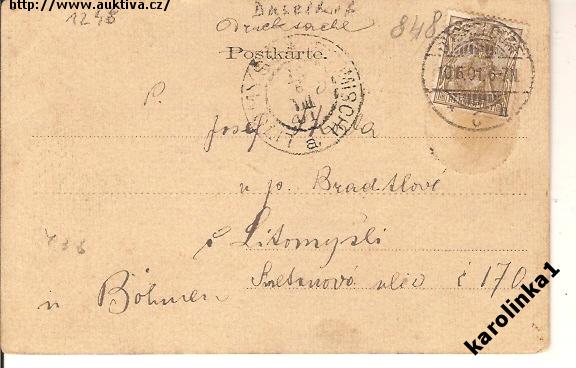 http://www.auktiva.cz/
1248
Düsseldorf
848
Drucksache
Postkarte.
10.6.01.6-7N.
P.
Josef
u p. Bradtlové
v Litomyšli
Smetanova ulice č 170
in Böhmen
karolinka1